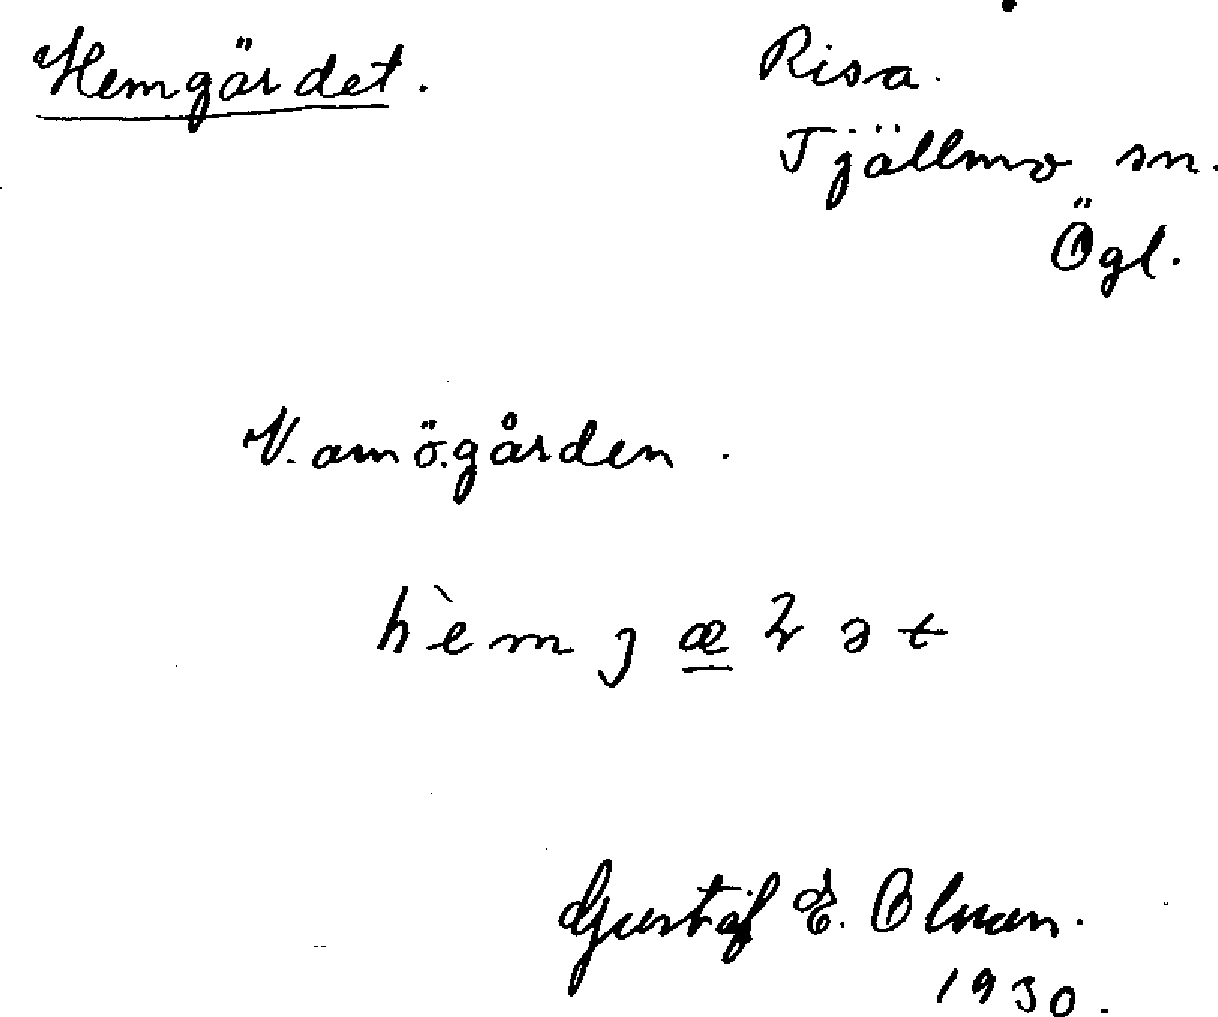 Hemgärdet.
Risa.
Tjällmo sn.
Ögl.
V. om ö. gården.
hèmjæ̲ꝛət
Gustaf E. Olsson.
1930.